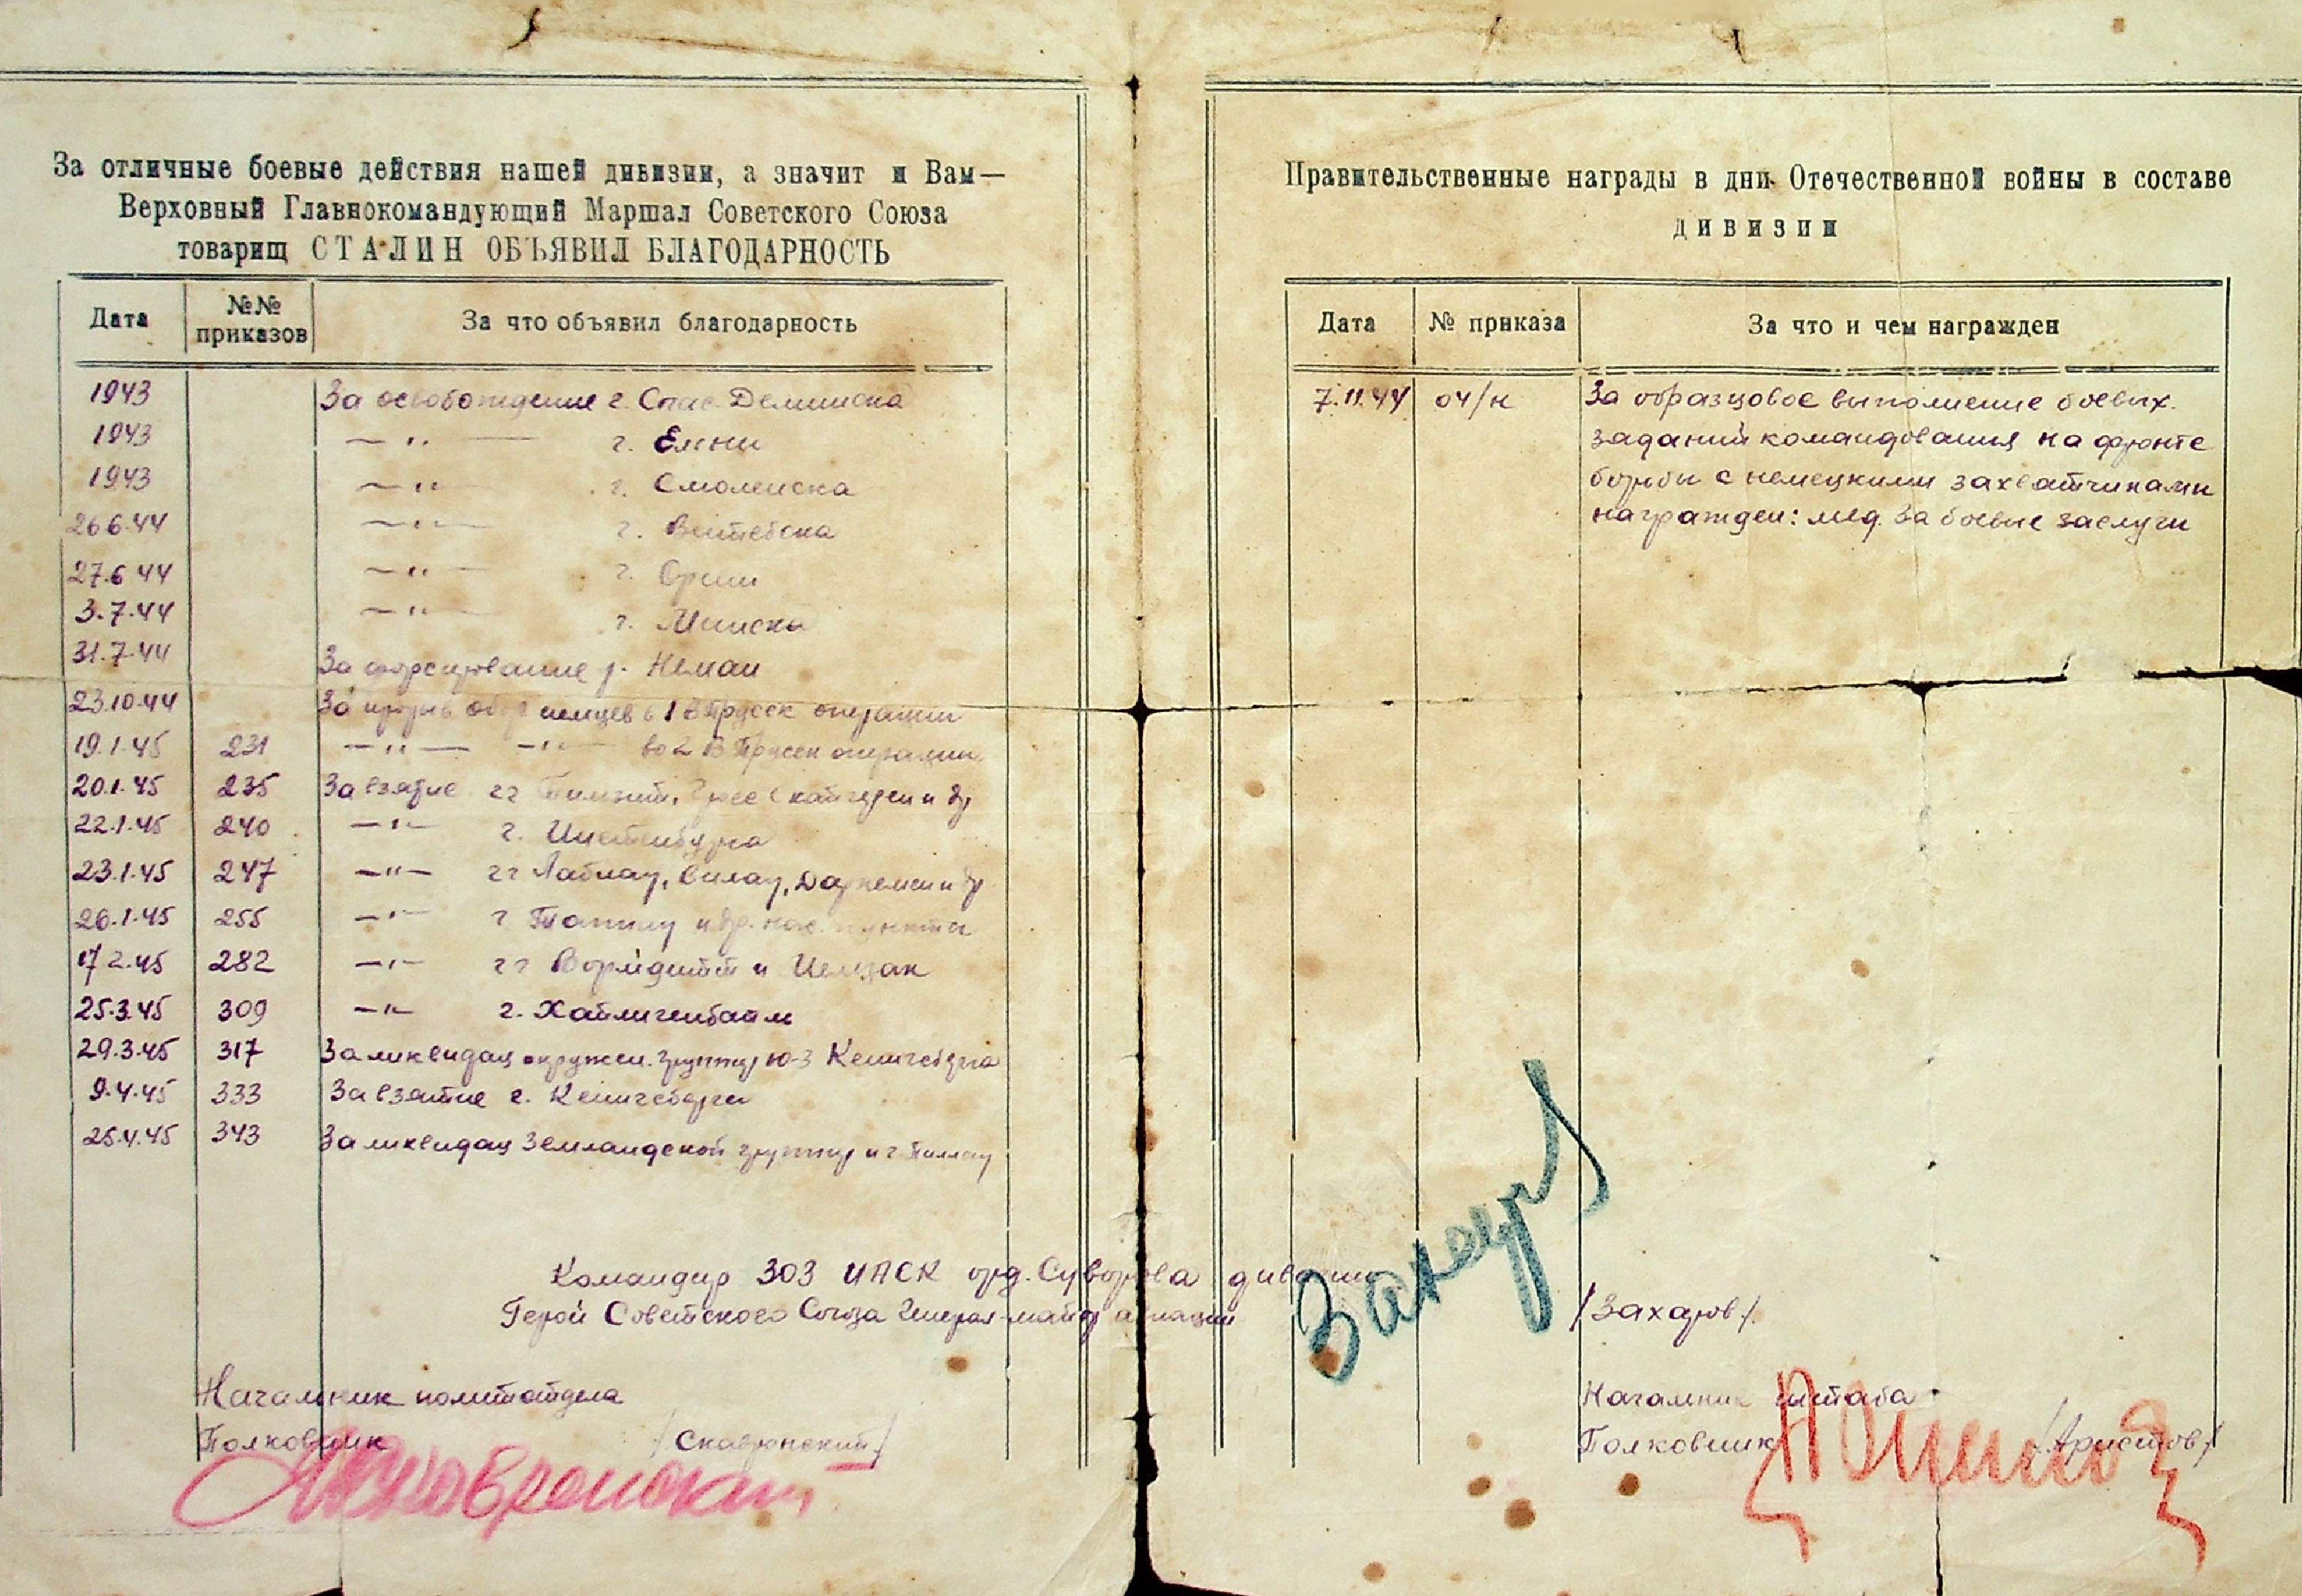 За отличные боевые действия нашей дивизии, а значит и Вам—
Верховный Главнокомандующий Маршал Советского Союза
товарищ СТАЛИН ОБЪЯВИЛ БЛАГОДАРНОСТЬ
Дата №№ приказов За что объявил благодарность
1943 За освобождение г. Спас-Деминска
1943 — " — г. Ельни
1943 — " — г. Смоленска
26.6.44 — " — г. Витебска
27.6.44 — " — г. Орши
3.7.44 — " — г. Минска
31.7.44 За форсирование р. Неман
23.10.44 За прорыв обор немцев в 1 В Прусск операции
19.1.45 231 — " — — " — во 2 В Прусск операции
20.1.45 235 За взятие гг Тильзит, и др
22.1.45 240 — " — г. Инстенбурга
23.1.45 247 — " — гг Лабиау, Велау, Даркемен и др
26.1.45 255 — " — г Тапиау и др. нас. пункты
17.2.45 282 — " — гг Вормдитт и Мельзак
25.3.45 309 — " — г. Хайлигенбайль
29.3.45 317 За ликвидац окружен. группир ю-з Кенигсберга
9.4.45 333 За взятие г. Кенигсберга
25.4.45 343 За ликвидац Земландской группир и г. Пиллау
Командир 303 ИАСК орд. Суворова дивизии
Герой Советского Союза Генерал-майор авиации
Начальник политотдела
Полковник /Скавронский/
Правительственные награды в дни Отечественной войны в составе
дивизии
Дата № приказа За что и чем награжден
7.11.44 04/н За образцовое выполнение боевых
заданий командования на фронте
борьбы с немецкими захватчиками
награжден: мед. За боевые заслуги
Захаров
/Захаров/.
Начальник штаба
Полковник /Аристов/